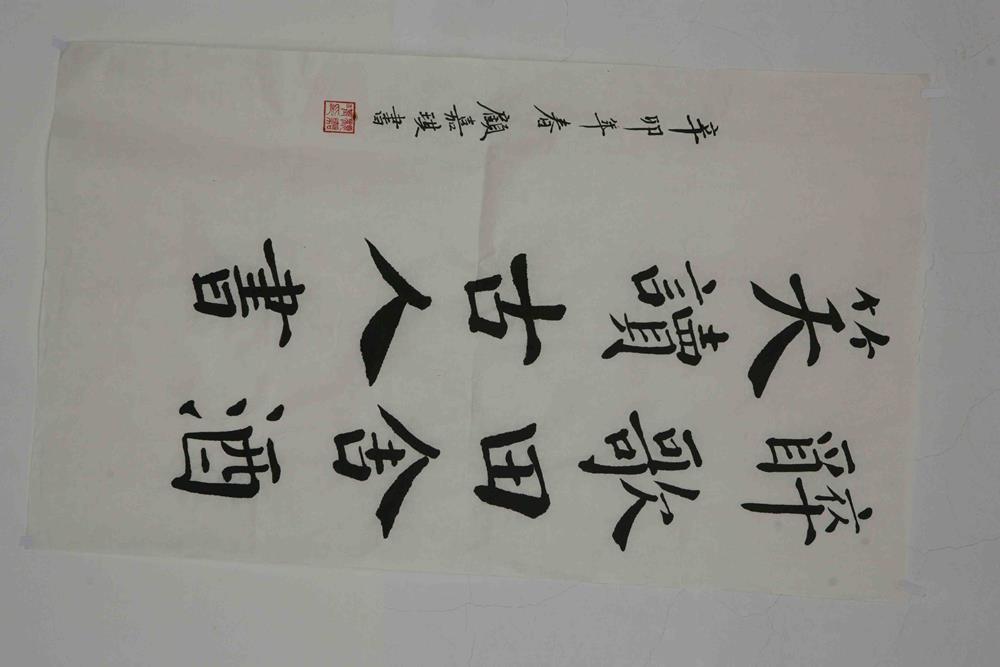 醉歌田舍酒
笑讀古人書
辛卯年春 顧嘉書